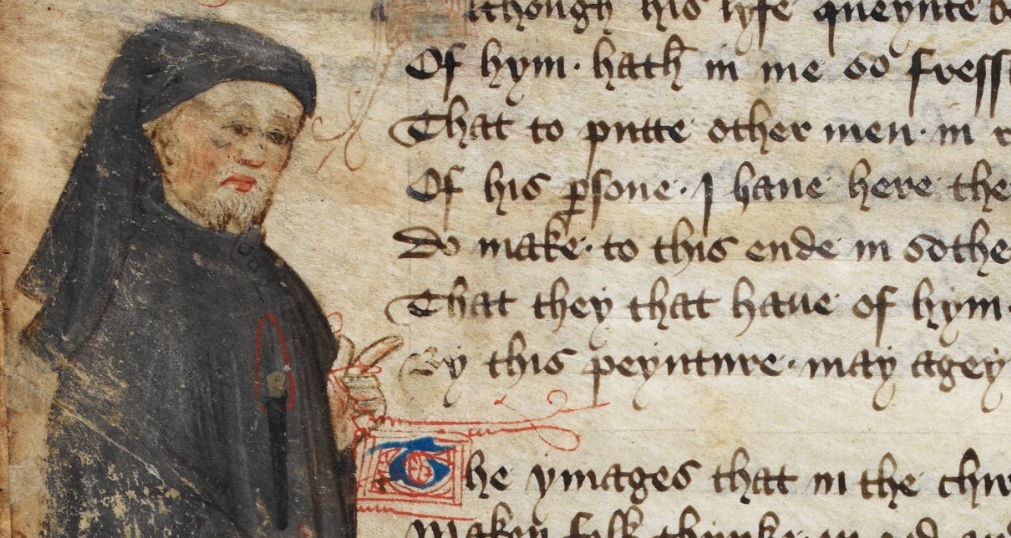 lthough his lyfe queynte
Of hym· hath in me so
That to putte other men· in
Of his ꝑsone· I haue here
Do make· to this ende in sothe
That they that haue of hym·
By this peynture· may
The ymages that in the
Maken folk thynke